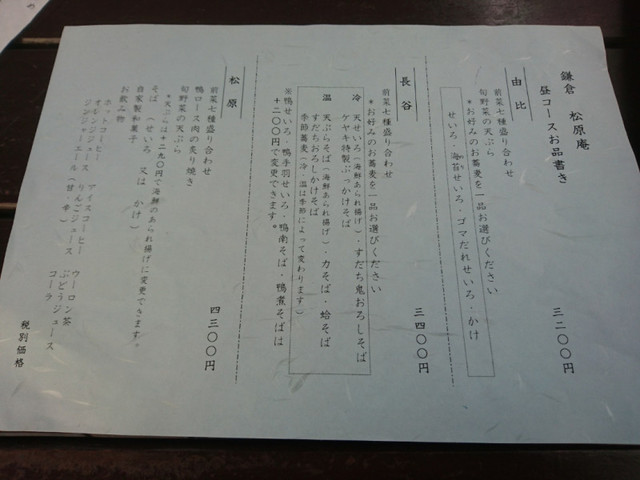 鎌倉 松原庵
昼コースお品書き
由比
三二〇〇円
前菜七種盛り合わせ
旬野菜の天ぷら
*お好みのお蕎麦を一品お選びください
せいろ・海苔せいろ・ゴマだれせいろ・かけ
長谷
三四〇〇円
前菜七種盛り合わせ
*お好みのお蕎麦を一品お選びください
冷 天せいろ(海鮮あられ揚げ)・すだち鬼おろしそば
ケヤキ特製ぶっかけそば
温 天ぷらそば(海鮮あられ揚げ)・力そば・蛤そば
すだちおろしかけそば
季節蕎麦(冷・温は季節によって変わります)
※鴨せいろ・鴨手羽せいろ・鴨南そば・鴨煮そばは
+二〇〇円で変更できます。
松原
四三〇〇円
前菜七種盛り合わせ
鴨ロース肉の炙り焼き
旬野菜の天ぷら
*天ぷらは+二九〇円で海鮮のあられ揚げに変更できます。
そば(せいろ 又は かけ)
自家製和菓子
お飲み物
ホットコーヒー アイスコーヒー ウーロン茶
オレンジジュース りんごジュース ぶどうジュース
ジンジャーエール(甘・辛) コーラ
税別価格